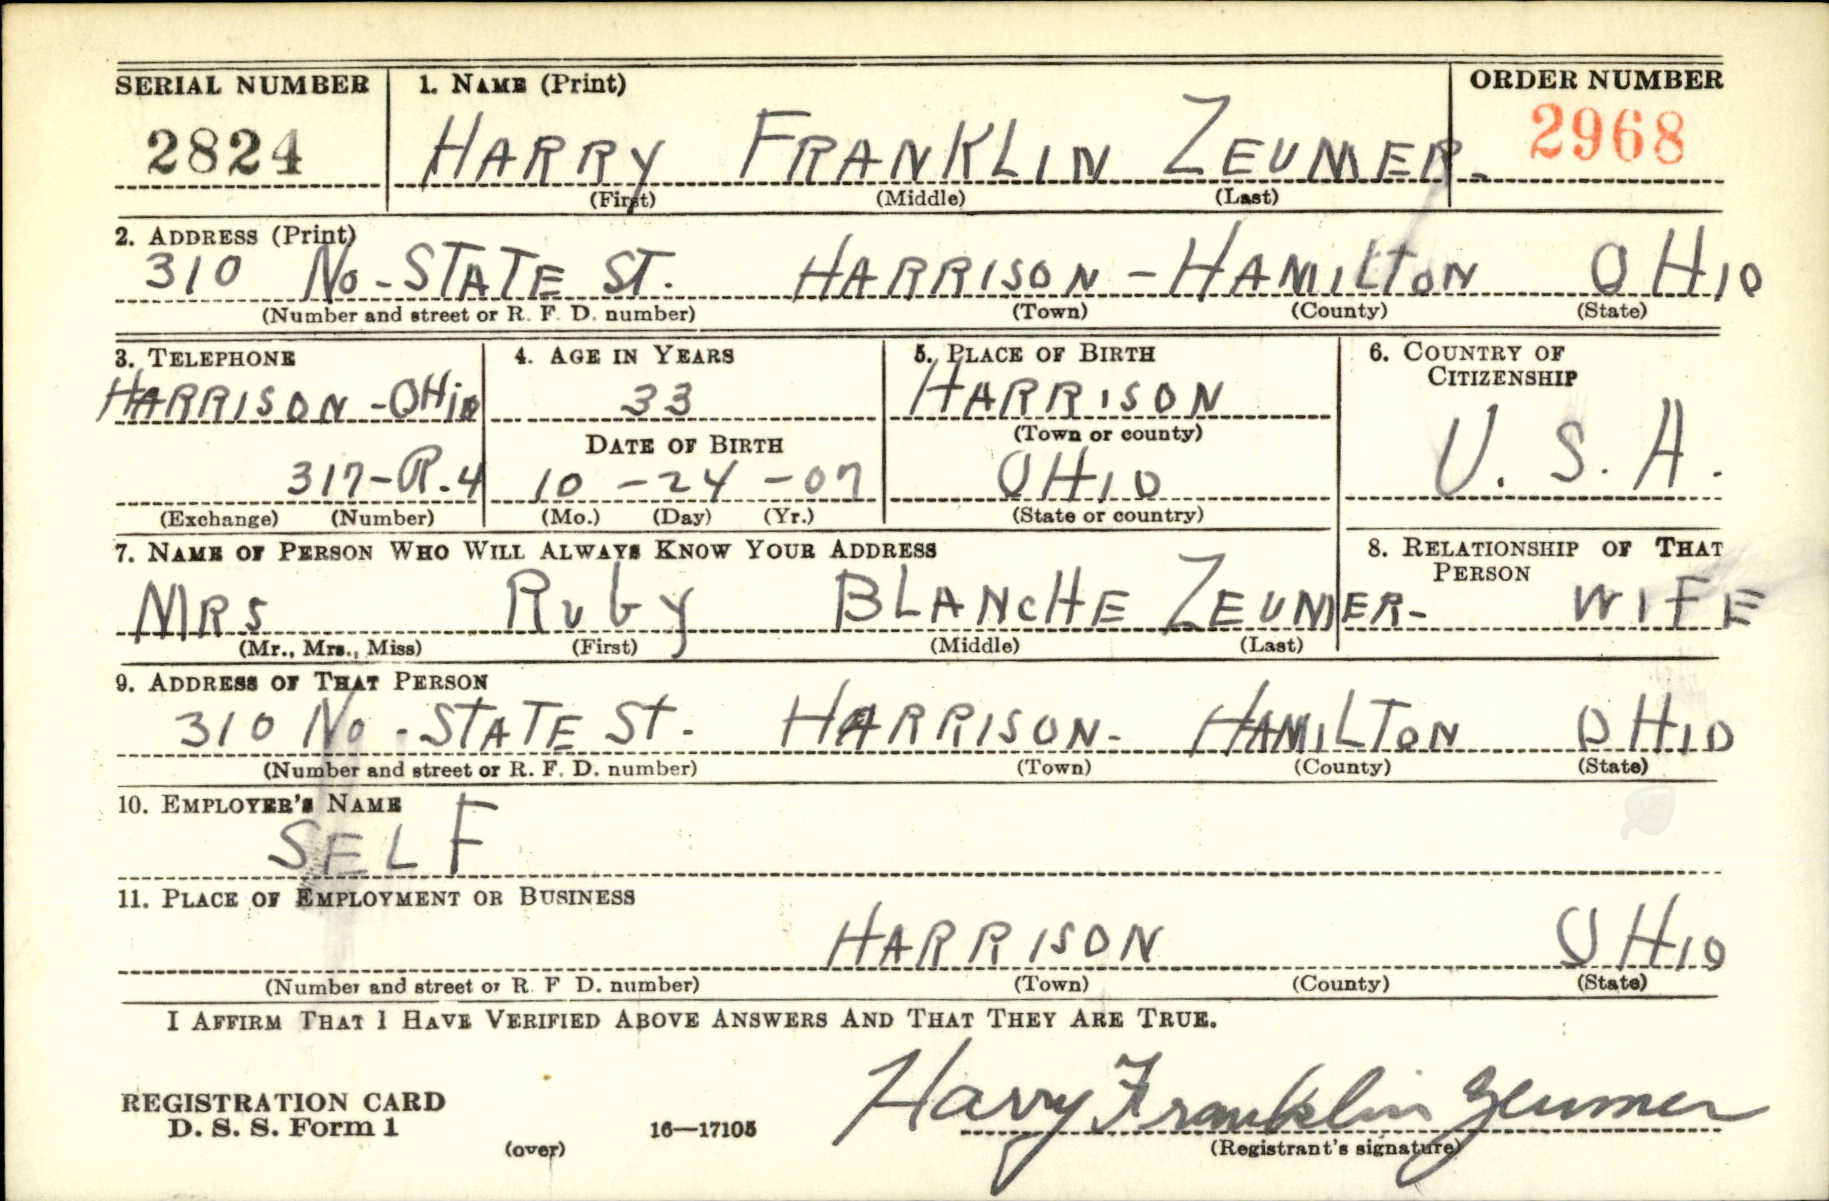 SERIAL NUMBER 1. NAME (Print) ORDER NUMBER
2824 HARRY FRANKLIN ZEUMER. 2968
(First) (Middle) (Last)
2. ADDRESS (Print)
310 No-STATE ST. HARRISON-HAMILTON OHIO
(Number and street or R. F. D. number) (Town) (County) (State)
3. TELEPHONE 4. AGE IN YEARS 5. PLACE OF BIRTH 6. COUNTRY OF
CITIZENSHIP
HARRISON-OHio 33 HARRISON
DATE OF BIRTH (Town or county)
317-R.4 10-24-07 OHIO U. S. A.
(Exchange) (Number) (Mo.) (Day) (Yr.) (State or country)
7. NAME OF PERSON WHO WILL ALWAYS KNOW YOUR ADDRESS 8. RELATIONSHIP OF THAT
PERSON
MRS Ruby BLANcHE ZEUMER- WIFE
(Mr., Mrs., Miss) (First) (Middle) (Last)
9. ADDRESS OF THAT PERSON
310 No-STATE St. HARRISON- HAMILTON OHIO
(Number and street or R. F. D. number) (Town) (County) (State)
10. EMPLOYER'S NAME
SELF
11. PLACE OF EMPLOYMENT OR BUSINESS
HARRISON OHIO
(Number and street or R. F. D. number) (Town) (County) (State)
I AFFIRM THAT I HAVE VERIFIED ABOVE ANSWERS AND THAT THEY ARE TRUE.
Harry Franklin Zeumer
REGISTRATION CARD
D. S. S. Form 1
(over) 16—17105 (Registrant's signature)